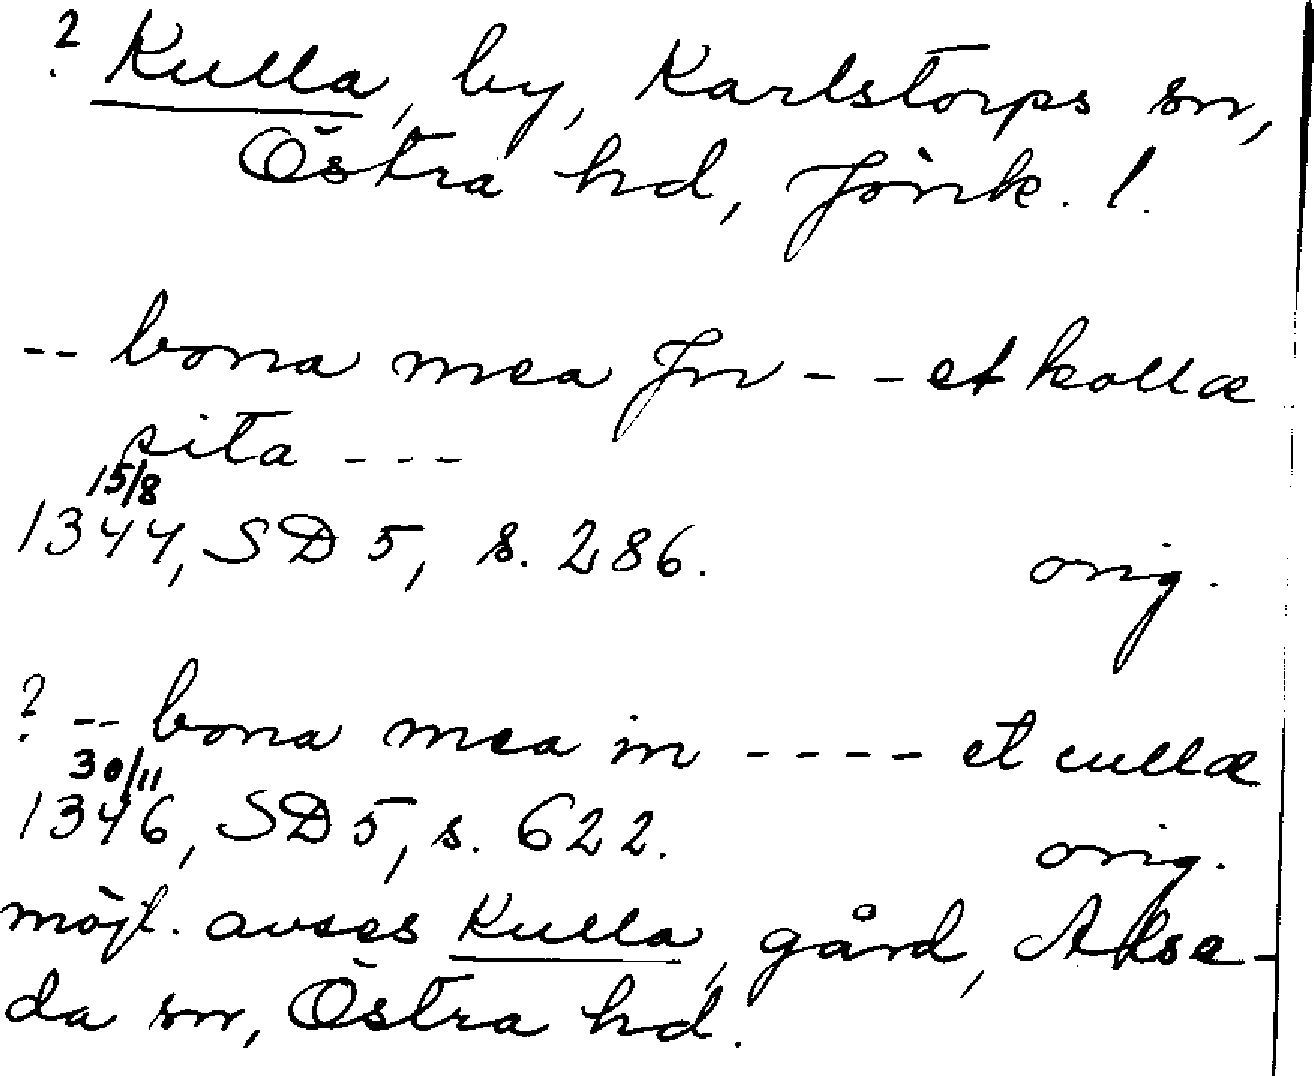 ? Kulla, by, Karlstorps sn,
Östra hd, Jönk. l.
-- bona mea Jn - - et kollæ
sita ---
15/8
1344, SD 5, s. 286. orig.
? -- bona mea in ---- et cullæ
30/11
1346, SD 5, s. 622. orig.
möjl. avses Kulla, gård, Alse-
da sn, Östra hd.